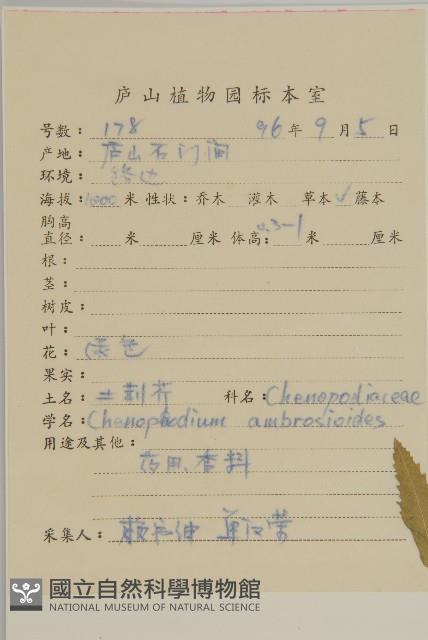 庐山植物园标本室
号数: 178 96年9月5日
产地: 庐山石门涧
环境: 路边
海拔: 1000米 性状: 乔木 灌木 草本✓ 藤本
胸高
直径: 米 厘米 体高: 0.3-1米 厘米
根:
茎:
树皮:
叶:
花: 绿色
果实:
土名: 土荆芥 科名: Chenopodiaceae
学名: Chenopodium ambrosioides
用途及其他:
药用、香料
采集人: 赖
國立自然科學博物館
NATIONAL MUSEUM OF NATURAL SCIENCE